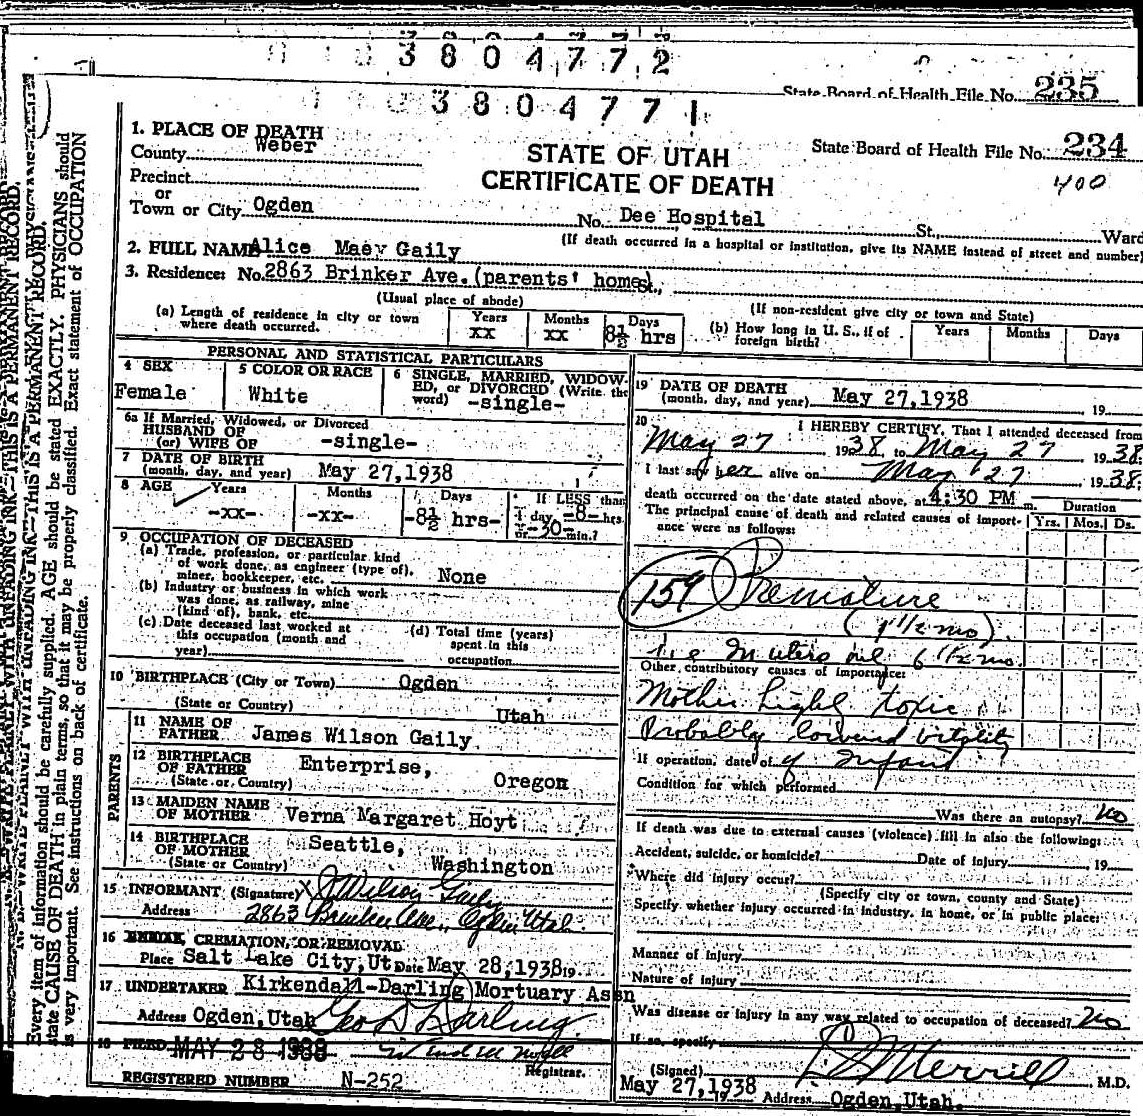 3804772
State Board of Health File No. 235
3804771
1. PLACE OF DEATH
County Weber
STATE OF UTAH
State Board of Health File No. 234
Precinct
CERTIFICATE OF DEATH
400
or
Town or City Ogden No. Dee Hospital St., Ward
(If death occurred in a hospital or institution, give its NAME instead of street and number)
2. FULL NAME Alice Maey Gaily
3. Residence: No. 2863 Brinker Ave. (parents' home) St.,
(Usual place of abode) (If non-resident give city or town and State)
(a) Length of residence in city or town where death occurred. Years xx Months xx Days 8½ hrs
(b) How long in U. S., if of foreign birth? Years Months Days
PERSONAL AND STATISTICAL PARTICULARS
4 SEX Female
5 COLOR OR RACE White
6 SINGLE, MARRIED, WIDOWED, or DIVORCED (Write the word) -single-
6a If Married, Widowed, or Divorced
HUSBAND OF
(or) WIFE OF -single-
7 DATE OF BIRTH
(month, day, and year) May 27,1938
8 AGE Years -xx- Months -xx- Days -8½ hrs- If LESS than 1 day -8- hrs. or -30- min.?
9 OCCUPATION OF DECEASED
(a) Trade, profession, or particular kind
of work done, as engineer (type of),
miner, bookkeeper, etc. None
(b) Industry or business in which work
was done, as railway, mine
(kind of), bank, etc.
(c) Date deceased last worked at
this occupation (month and
year)
(d) Total time (years)
spent in this
occupation
10 BIRTHPLACE (City or Town) Ogden
(State or Country) Utah
PARENTS
11 NAME OF
FATHER James Wilson Gaily
12 BIRTHPLACE
OF FATHER Enterprise,
(State or Country) Oregon
13 MAIDEN NAME
OF MOTHER Verna Margaret Hoyt
14 BIRTHPLACE
OF MOTHER Seattle,
(State or Country) Washington
15 INFORMANT (Signature) X J Wilson Gaily
Address 2863 Brinker Ave., Ogden Utah.
16 BURIAL, CREMATION, OR REMOVAL
Place Salt Lake City, Ut. Date May 28,1938 19
17 UNDERTAKER Kirkendall-Darling Mortuary Assn
Address Ogden, Utah Geo D Darling.
18 FILED MAY 28 1938
Registrar.
REGISTERED NUMBER N-252
19 DATE OF DEATH
(month, day, and year) May 27,1938 19
20 I HEREBY CERTIFY, That I attended deceased from
May 27 1938 to May 27 1938
I last saw her alive on May 27 1938;
death occurred on the date stated above, at 4:30 PM m.
The principal cause of death and related causes of importance were as follows:
Duration
Yrs. Mos. Ds.
159 Premature
(1 1/2 mo).
i.e. In utero only 6 1/2 mo.
Other contributory causes of importance:
Mother highly toxic
Probably lowered vitality
of Infant
If operation, date of
Condition for which performed
Was there an autopsy? No
If death was due to external causes (violence) fill in also the following:
Accident, suicide, or homicide? Date of injury 19
Where did injury occur?
(Specify city or town, county and State)
Specify whether injury occurred in industry, in home, or in public place:
Manner of injury
Nature of injury
Was disease or injury in any way related to occupation of deceased? No
If so, specify
(Signed) Merrill M.D.
May 27,1938 19 Address Ogden, Utah.
Every item of information should be carefully supplied. AGE should be stated EXACTLY. PHYSICIANS should
state CAUSE OF DEATH in plain terms, so that it may be properly classified. Exact statement of OCCUPATION
is very important. See instructions on back of certificate.